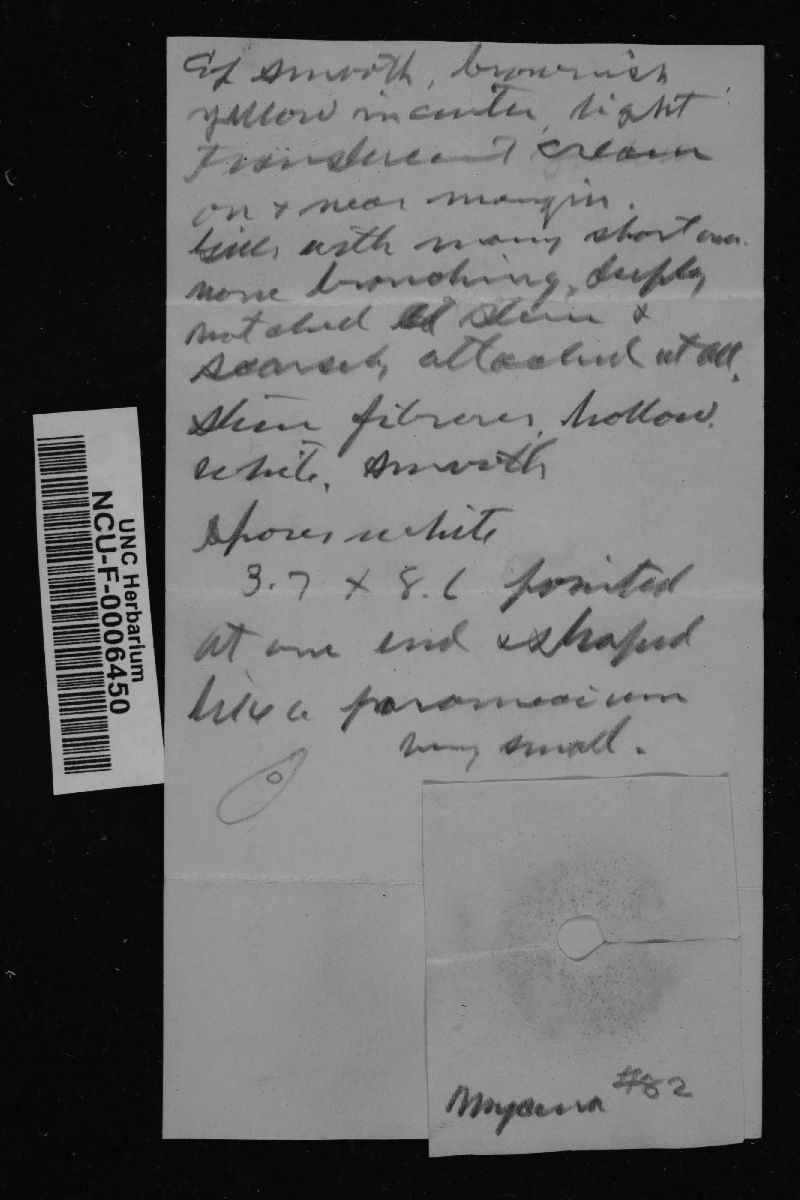 Cap smooth, brownish
yellow in center, light
translucent cream
on & near margin.
Gills with many short ones.
none branching, deeply
notched at stem &
scarsely attached at all.
Stem fibrous, hollow.
white, smooth
Spores white
3.7 x 8.6 pointed
at one end & shaped
like a paramecium
very small.
#82
UNC Herbarium
NCU-F-0006450